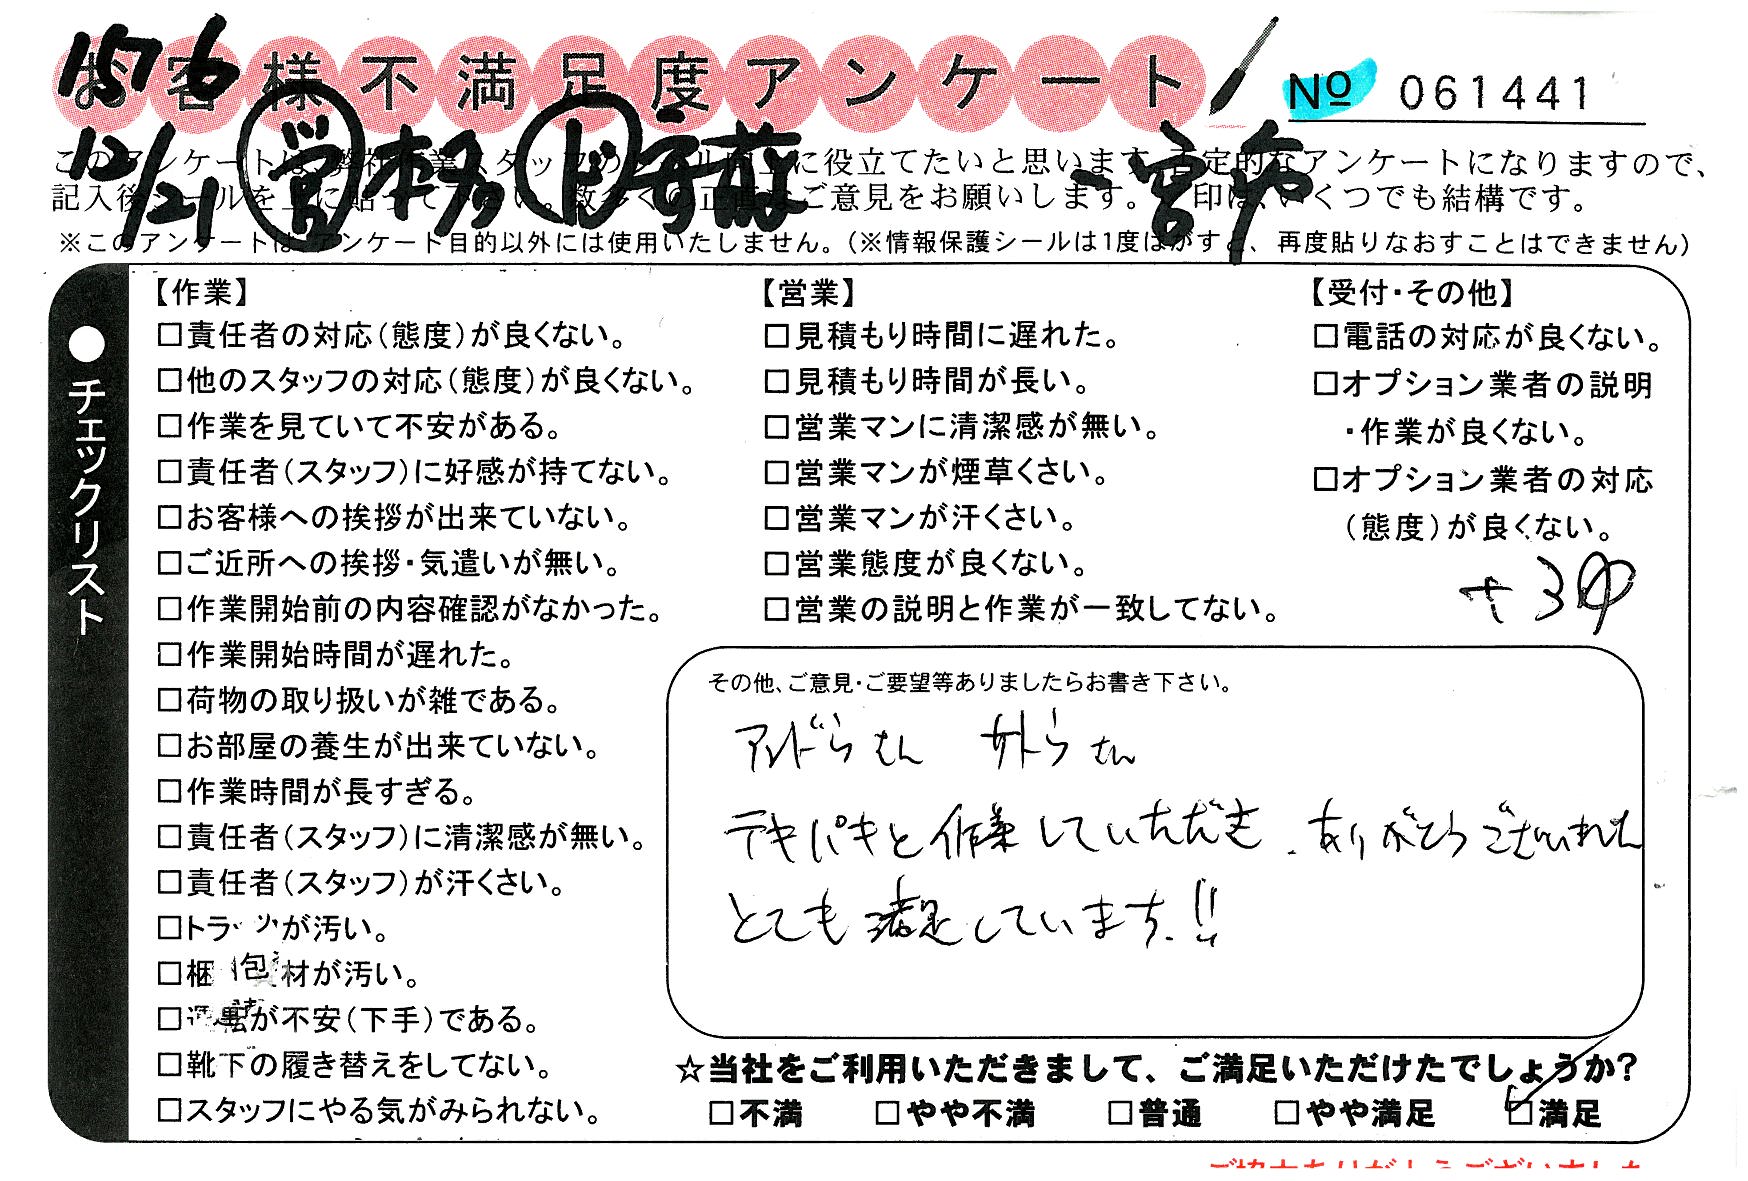 1576
お客様不満足度アンケート
No 061441
12/21 営 本多 ド 安藤 一宮市
このアンケートは、弊社作業スタッフの に役立てたいと思います。否定的なアンケートになりますので、
記入後シールを上に貼って下さい。数多くの正直なご意見をお願いします。 印は、いくつでも結構です。
※このアンケートは、アンケート目的以外には使用いたしません。(※情報保護シールは1度はがすと、再度貼りなおすことはできません)
●チェックリスト
【作業】
□責任者の対応(態度)が良くない。
□他のスタッフの対応(態度)が良くない。
□作業を見ていて不安がある。
□責任者(スタッフ)に好感が持てない。
□お客様への挨拶が出来ていない。
□ご近所への挨拶・気遣いが無い。
□作業開始前の内容確認がなかった。
□作業開始時間が遅れた。
□荷物の取り扱いが雑である。
□お部屋の養生が出来ていない。
□作業時間が長すぎる。
□責任者(スタッフ)に清潔感が無い。
□責任者(スタッフ)が汗くさい。
□トラックが汚い。
□梱包資材が汚い。
□運転が不安(下手)である。
□靴下の履き替えをしてない。
□スタッフにやる気がみられない。
【営業】
□見積もり時間に遅れた。
□見積もり時間が長い。
□営業マンに清潔感が無い。
□営業マンが煙草くさい。
□営業マンが汗くさい。
□営業態度が良くない。
□営業の説明と作業が一致してない。
【受付・その他】
□電話の対応が良くない。
□オプション業者の説明
・作業が良くない。
□オプション業者の対応
(態度)が良くない。
その他、ご意見・ご要望等ありましたらお書き下さい。
アンドウさん サトウさん
テキパキと作業していただき、ありがとうございました
とても満足しています!!
☆当社をご利用いただきまして、ご満足いただけたでしょうか?
□不満 □やや不満 □普通 □やや満足 ☑満足
ご協力ありがとうございました